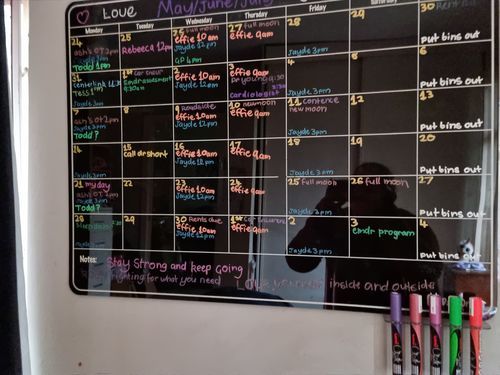 Love May/June/July
Monday Tuesday Wednesday Thursday Friday Saturday
24
ash's OT 2pm
Todd 1pm
25
Rebecca 12pm
26 full moon
effie 10am
Jayde 12pm
GP 4pm
27 full moon
effie 9am
28
Jayde 3pm
29
30
put bins out
31
Jayde 3pm
1st
9:30am
effie 10am
Jayde 12pm
3
effie 9am
cardiologist
Jayde 3pm
5
6
put bins out
7
ash's OT 2pm
Jayde 3pm
Todd?
8
9
effie 10am
Jayde 12pm
10 new moon
effie 9am
11
new moon
Jayde 3pm
12
13
put bins out
14
Jayde 3pm
15
call dr short
16
effie 10am
Jayde 12pm
17
effie 9am
18
Jayde 3pm
19
20
put bins out
21 my day
ash's OT 2pm
Jayde 3pm
Todd?
22
23
effie 10am
Jayde 12pm
24
effie 9am
25 full moon
Jayde 3pm
26 full moon
27
put bins out
28
29
30 Rents due
effie 10am
Jayde 12pm
1st
effie 9am
2
Jayde 3pm
3
emdr program
4
put bins out
Notes: Stay Strong and keep going
fighting for what you need
Love yourself inside and outside